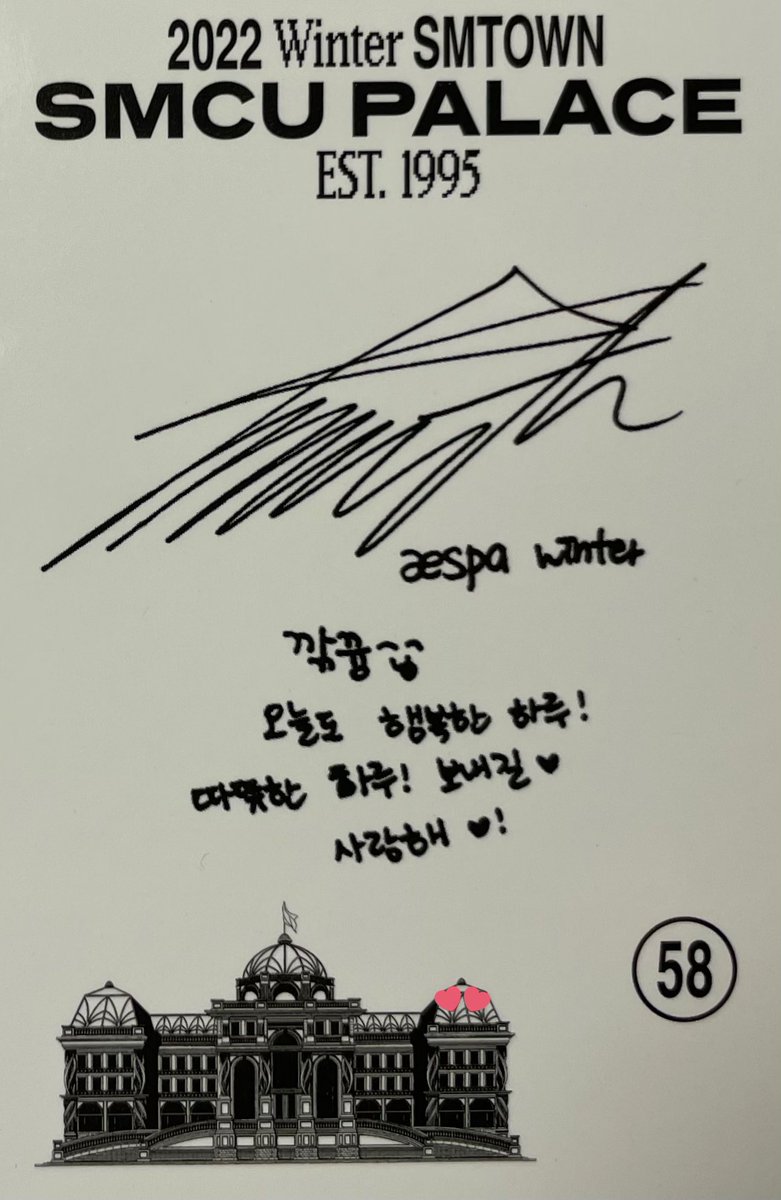 2022 Winter SMTOWN
SMCU PALACE
EST. 1995
æspa winter
오늘도 행복한 하루!
따뜻한 하루! 보내길 ♥
사랑해 ♥!
58